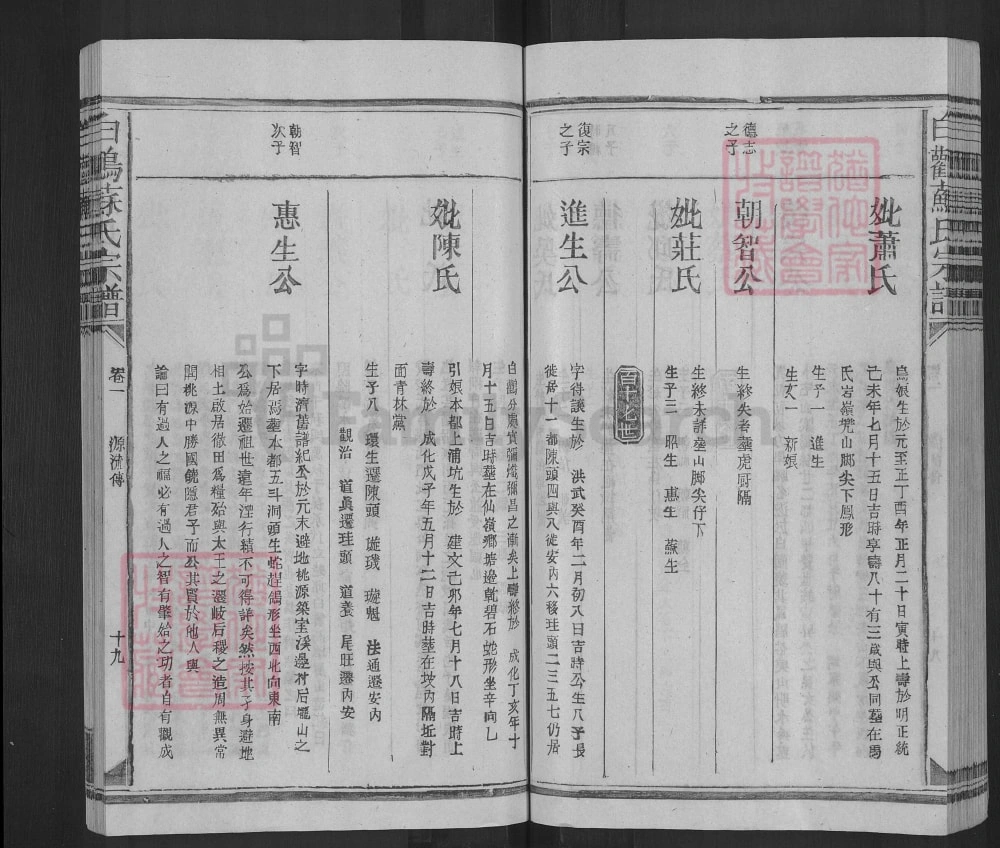 妣蕭氏
烏娘生於元至正丁酉年正月二十日寅時上壽於明正統
己未年七月十五日吉時享壽八十有三歲與公同塟在馬
氏岩嶺 山脚尖下鳳形
生子一 進生
生女一 新娘
德志
之子
朝智公
生終失考塟虎厨隔
妣莊氏
生終未詳塟山脚尖仔下
生子三 昭生 惠生 蘇生
百十七世
復宗
之子
進生公
字得讓生於 洪武癸酉年二月初八日吉時公生八子長
徙居十一都陳頭四與八徙安內六移珪頭二三五七仍居
白鶴分處實彌熾彌昌之漸矣上壽終於 成化丁亥年十
月十五日吉時塟在仙嶺鄉塘邊乾碧石蛇形坐辛向乙
妣陳氏
引娘本都上浦坑生於 建文己卯年七月十八日吉時上
壽終於 成化戊子年五月十二日吉時塟在坡內隔坵對
面青林窠
生子八 環生遷陳頭 璇璣 璇魁 法通遷安內
觀治 道眞遷珪頭 道養 尾旺遷內安
朝智
次子
惠生公
字時濟舊譜紀公於元末避地桃源築室溪邊村后壠山之
下居焉塟本都五斗洞頭生蛇趕鴿形坐西北向東南
公爲始遷祖世遠年湮行績不可得詳矣然按其孑身避地
相土啟居徹田爲糧殆與太王之遷岐后稷之造周無異常
聞桃源中勝國饒隱君子而公其賢於他人與
論曰有過人之福必有過人之智有肇始之功者自有觀成
白鶴蘇氏宗譜
卷一
源流傳
十九